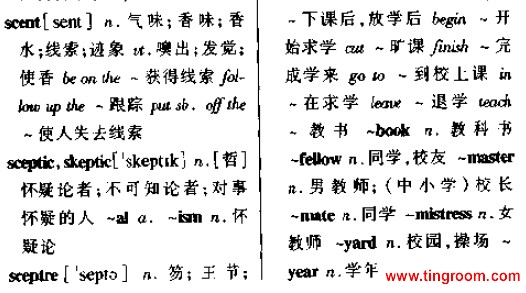 scent[sent] n. 气味；香味；香
水；线索；迹象 vt. 嗅出；发觉；
使香 be on the ~ 获得线索 fol-
low up the ~ 跟踪 put sb. off the
~ 使人失去线索
sceptic, skeptic['skeptɪk] n.[哲]
怀疑论者；不可知论者；对事
怀疑的人 ~al a. ~ism n. 怀
疑论
sceptre ['septə] n. 笏；王节；
~ 下课后，放学后 begin ~ 开
始求学 cut ~ 旷课 finish ~ 完
成学来 go to ~ 到校上课 in
~ 在求学 leave ~ 退学 teach
~ 教书 ~book n. 教科书
~fellow n. 同学，校友 ~master
n. 男教师；（中小学）校长
~mate n. 同学 ~mistress n. 女
教师 ~yard n. 校园，操场 ~
year n. 学年
www.tingroom.com